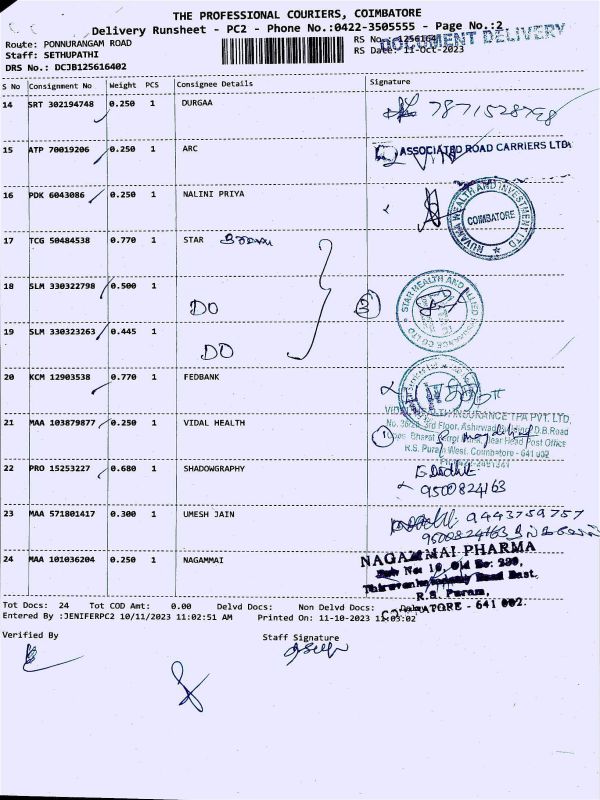 THE PROFESSIONAL COURIERS, COIMBATORE
Delivery Runsheet - PC2 - Phone No.:0422-3505555 - Page No.:2
DOCUMENT DELIVERY
Route: PONNURANGAM ROAD
RS No.: 1256164
Staff: SETHUPATHI
RS Date: 11-Oct-2023
DRS No.: DCJB125616402
S No Consignment No Weight PCS Consignee Details Signature
14 SRT 302194748 0.250 1 DURGAA
15 ATP 70019206 0.250 1 ARC ASSOCIATED ROAD CARRIERS LTD
16 PDK 6043086 0.250 1 NALINI PRIYA
NUVAMA WEALTH AND INVESTMENT LTD
COIMBATORE
17 TCG 50484538 0.770 1 STAR
18 SLM 330322798 0.500 1
DO
STAR HEALTH AND ALLIED INSURANCE CO LTD
3
19 SLM 330323263 0.445 1
DO
20 KCM 12903538 0.770 1 FEDBANK
21 MAA 103879877 0.250 1 VIDAL HEALTH
VIDAL HEALTH INSURANCE TPA PVT. LTD,
3rd Floor, Ashirwad Building D.B.Road
1
Opp. Bharat Petrol Bunk, Near Head Post Office
R.S. Puram West. Coimbatore - 641 002
22 PRO 15253227 0.680 1 SHADOWGRAPHY
9500824163
23 MAA 571801417 0.300 1 UMESH JAIN
9443759757
9500824163
24 MAA 101036204 0.250 1 NAGAMMAI
NAGAMMAI PHARMA
R.S. Puram,
COIMBATORE - 641 002.
Tot Docs: 24 Tot COD Amt: 0.00 Delvd Docs: Non Delvd Docs:
Entered By :JENIFERPC2 10/11/2023 11:02:51 AM Printed On: 11-10-2023 11:03:02
Verified By Staff Signature